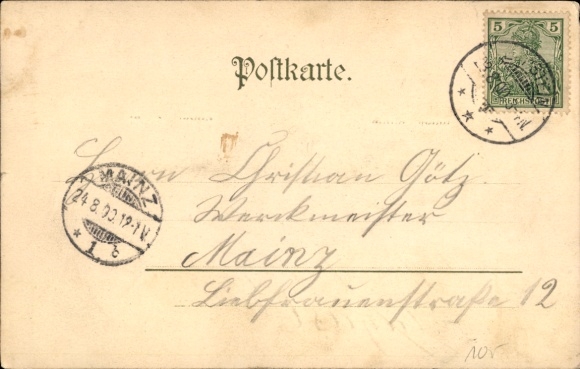 5 5
REICHSPOST
Postkarte.
Herrn Christian Götz.
Werkmeister
MAINZ
24.8.00.12-1N.
* 1 c
Mainz
Liebfrauenstraße 12
10.-